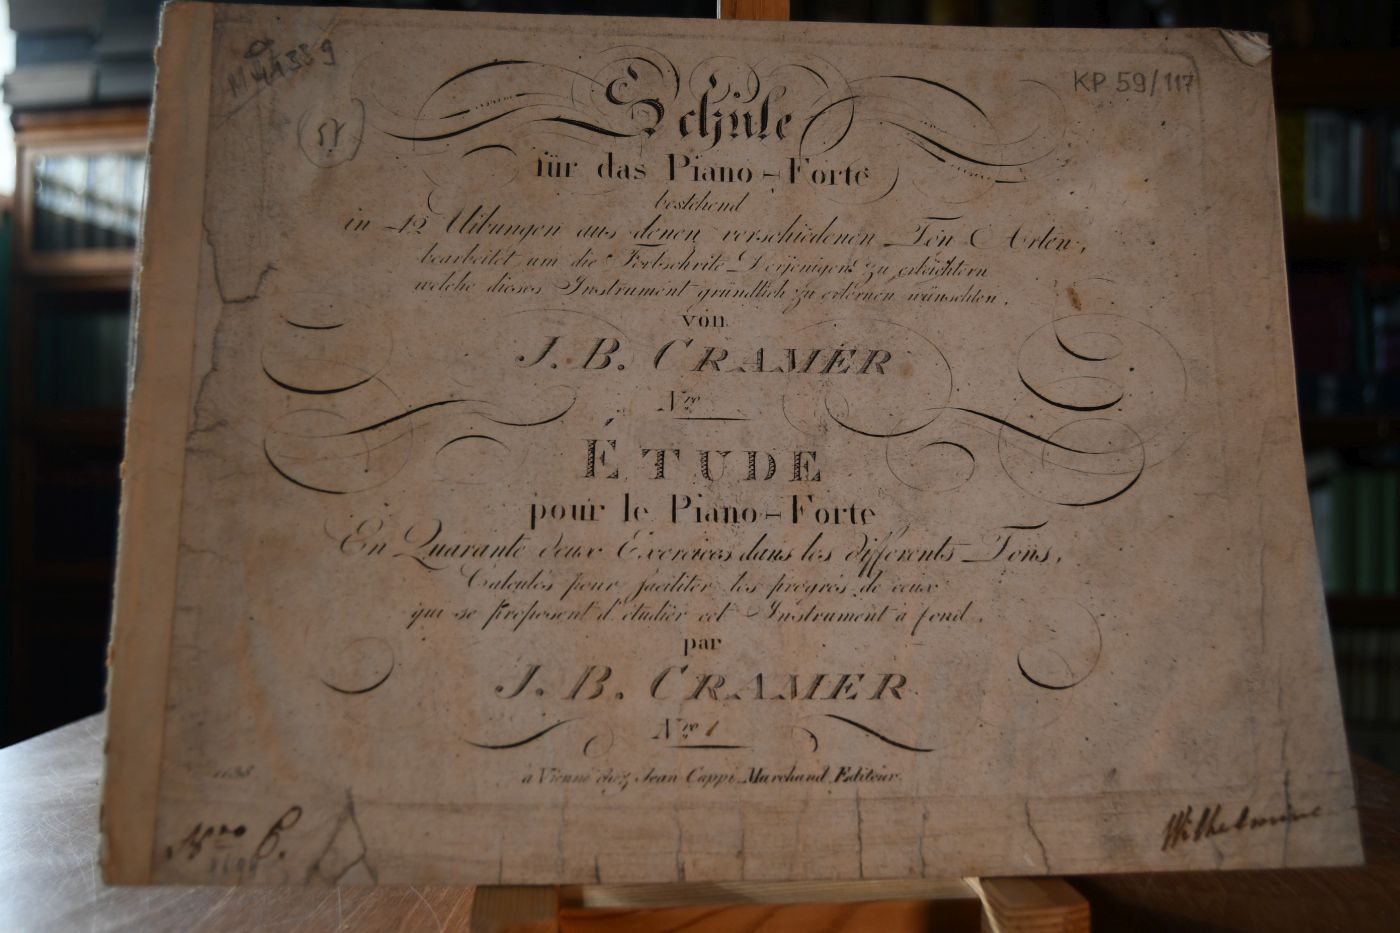 M 41339
57
KP 59/117
Schule
für das Piano-Forte
bestehend
in 42 Uibungen aus denen verschiedenen Ton Arten,
bearbeitet um die Fortschrite Derjenigen zu erleichtern
welche dieses Instrument gründlich zu erlernen wünschten.
von
J. B. CRAMER
Nro
ÉTUDE
pour le Piano-Forte
En Quarante deux Exercices dans les différents Tons,
Calculés pour faciliter les progrés de ceux
qui se proposent d'étudier cet Instrument à fond.
par
J. B. CRAMER
Nro 1
à Vienne chez Jean Cappi Marchand Editeur.
Nro 6.
Wilhelmine